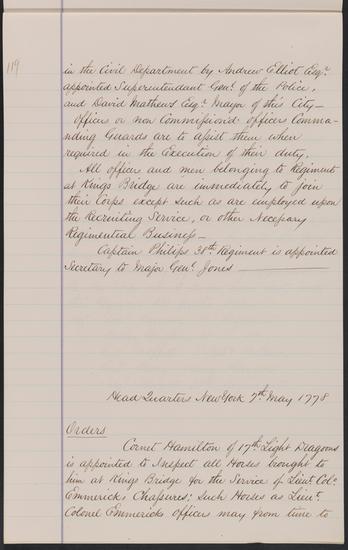 119
in the Civil Department by Andrew Elliot Esqr.
appointed Superentendant Genl. of the Police,
and David Mathews Esqr. Mayor of this City—
Officers or non Commissiond officers Comma-
nding Guards are to assist them when
required in the Execution of their duty.
All officer and men belonging to Regiment
at Kings Bridge are immediately to join
their Corps except such as are employed upon
the Recruiting Service, or other Necessary
Regimental Business—
Captain Philips 38th. Regiment is appointed
Secretary to Major Genl. Jones
Head Quarters New York 7th. May 1778
Orders
Cornet Hamilton of 17th. Light Dragoons
is appointed to Inspect all Horses brought to
him at Kings Bridge for the Service of Lieut. Colo.
Emmericks Chassures; Such Horses as Lieut.
Colonel Emmericks officers may from time to